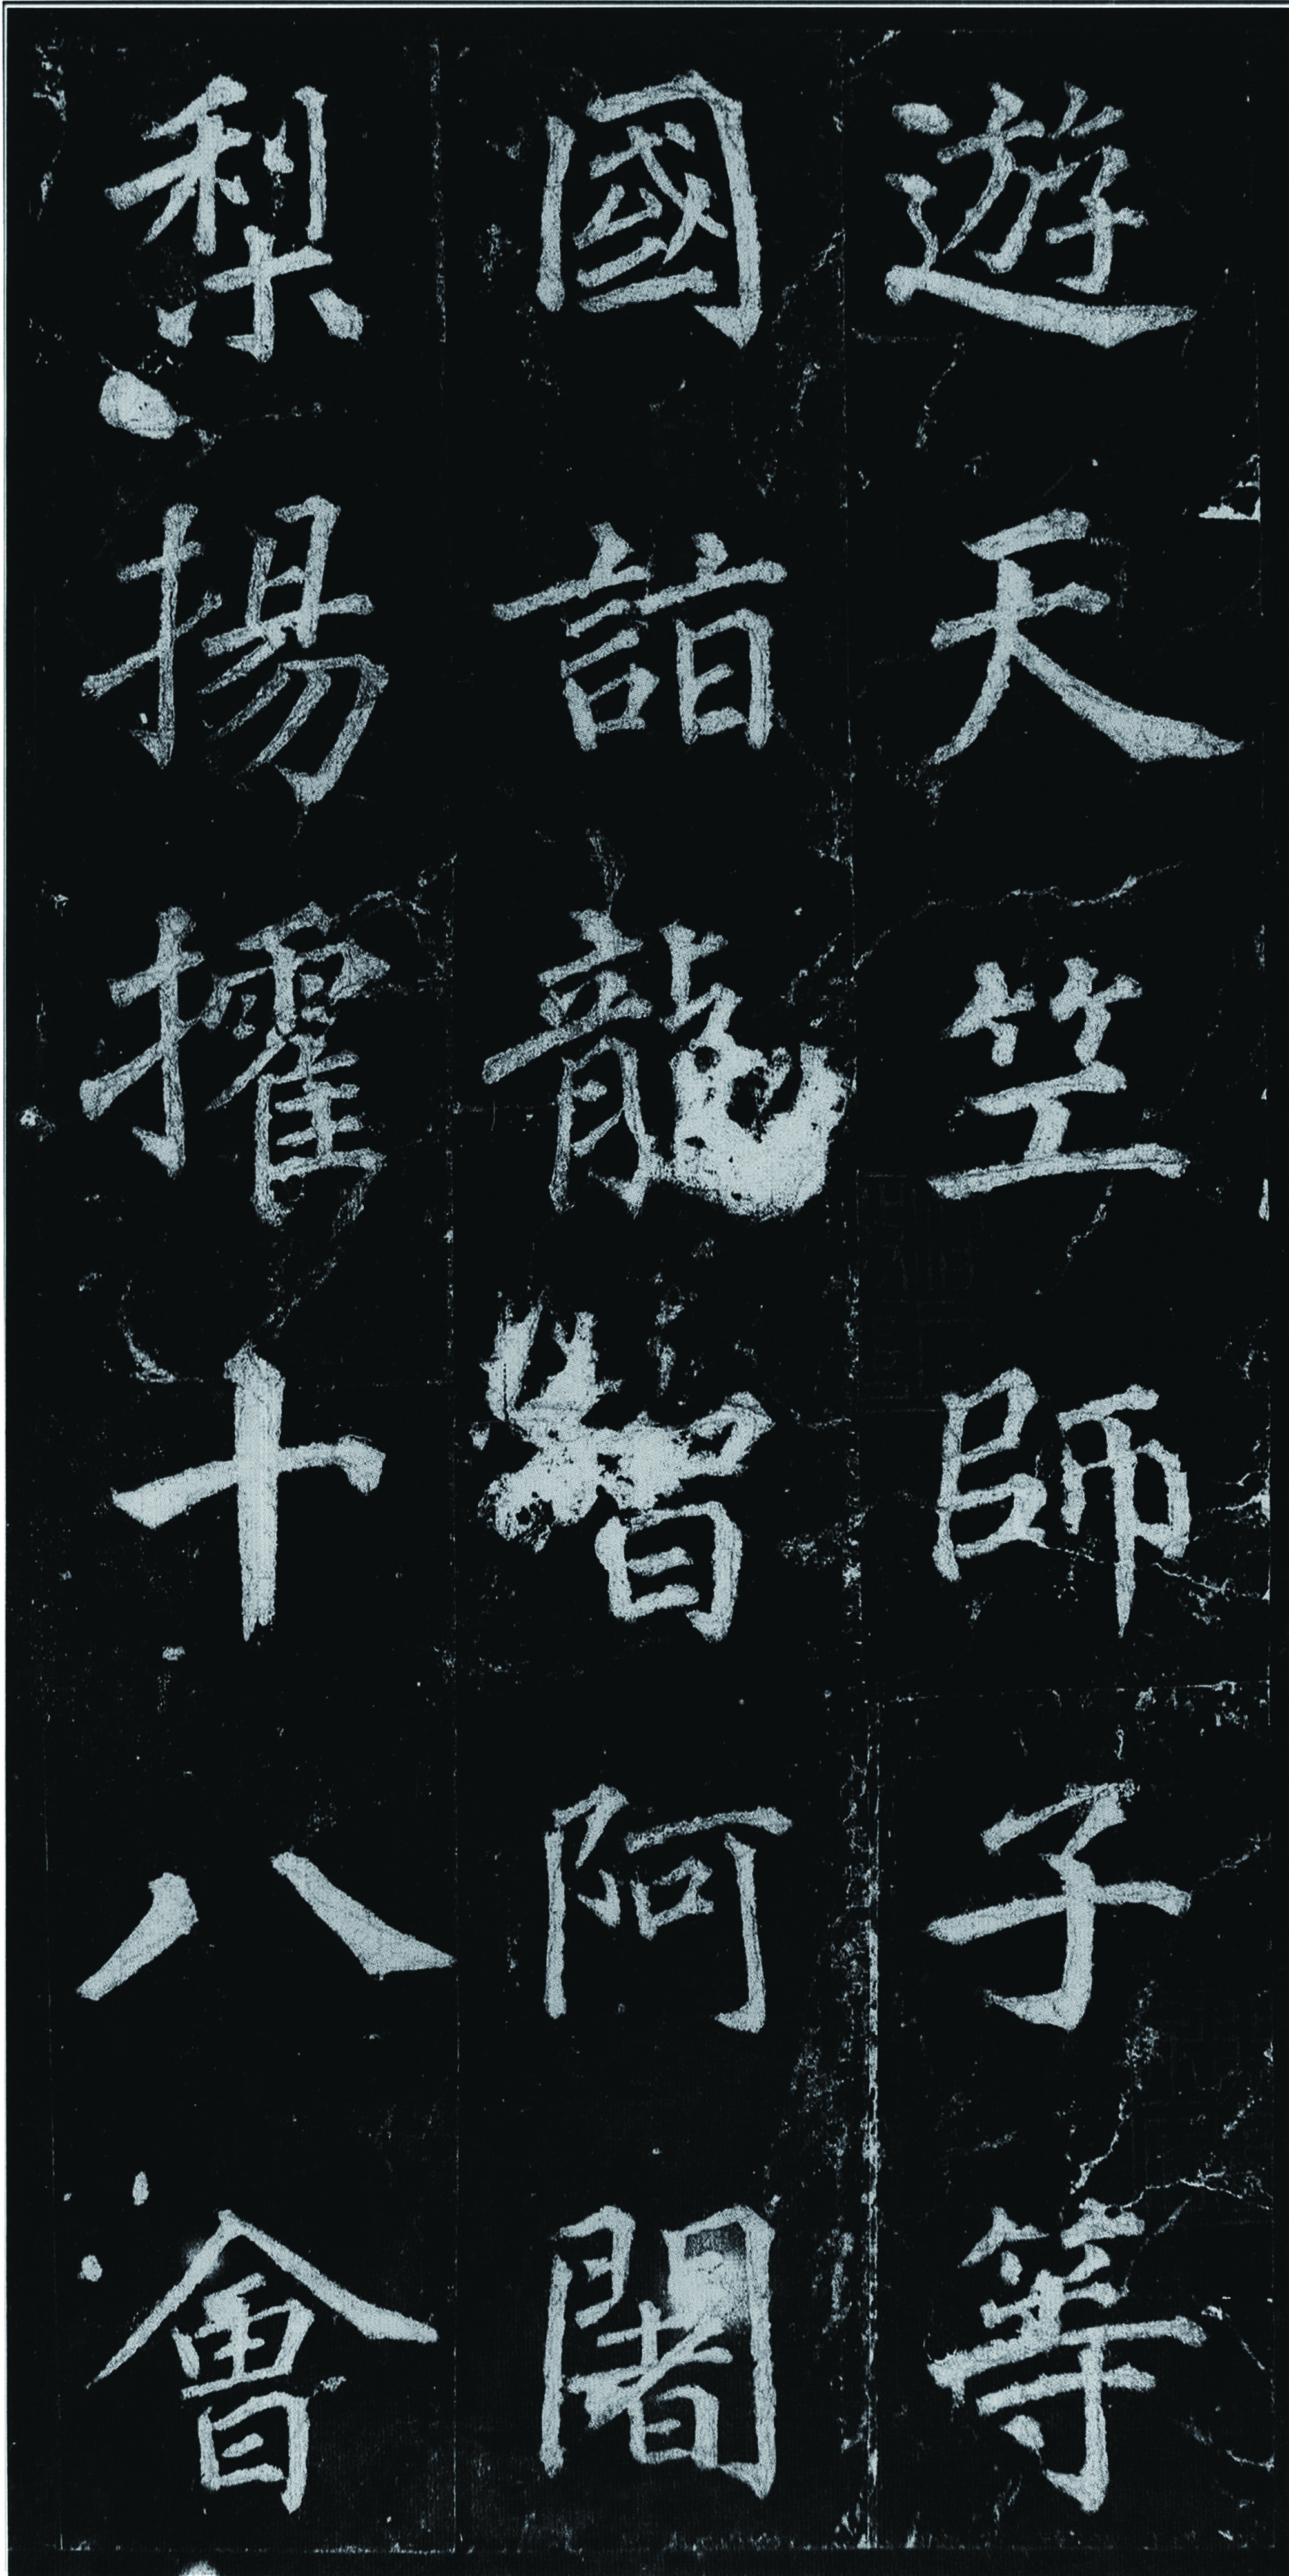 遊天竺師子等
國詣龍智阿闍
梨揚攉十八會